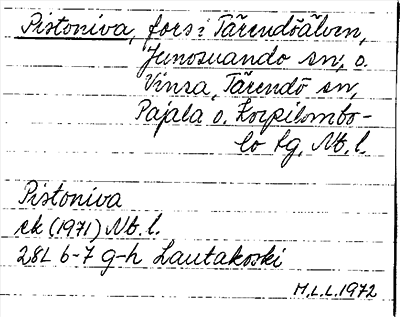 Pistoniva, fors i Tärendöälven,
Junosuando sn, o.
Vinsa, Tärendö sn,
Pajala o. Korpilombo-
lo tg, Nb. l
Pistoniva
ek (1971) Nb. l.
28L 6-7 g-h Lautakoski
M.L.L. 1972